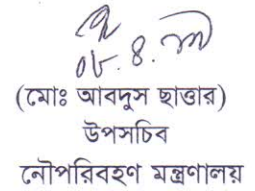 (মোঃ আবদুস ছাত্তার)
উপসচিব
নৌপরিবহণ মন্ত্রণালয়